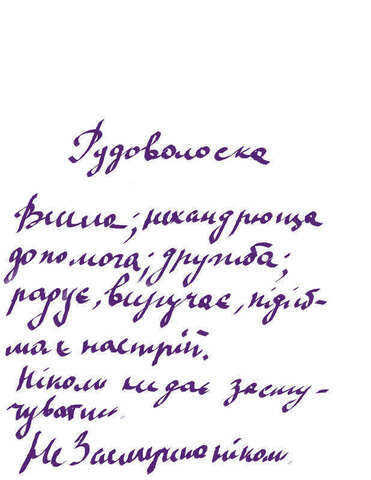 Рудоволоска
Весела; нехандрюща
допомога; дружба;
радує, виручає, підій-
має настрій.
Ніколи не дає засму-
чуватись.
Не Засмучена ніколи.